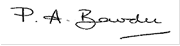 P. A. Bowden